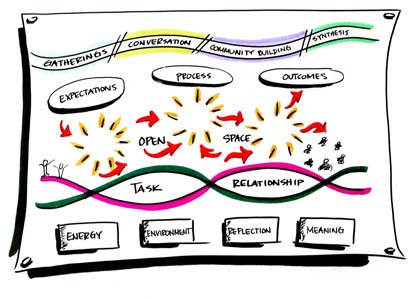 GATHERINGS
CONVERSATION
COMMUNITY BUILDING
SYNTHESIS
EXPECTATIONS
PROCESS
OUTCOMES
OPEN SPACE
TASK
RELATIONSHIP
ENERGY
ENVIRONMENT
REFLECTION
MEANING